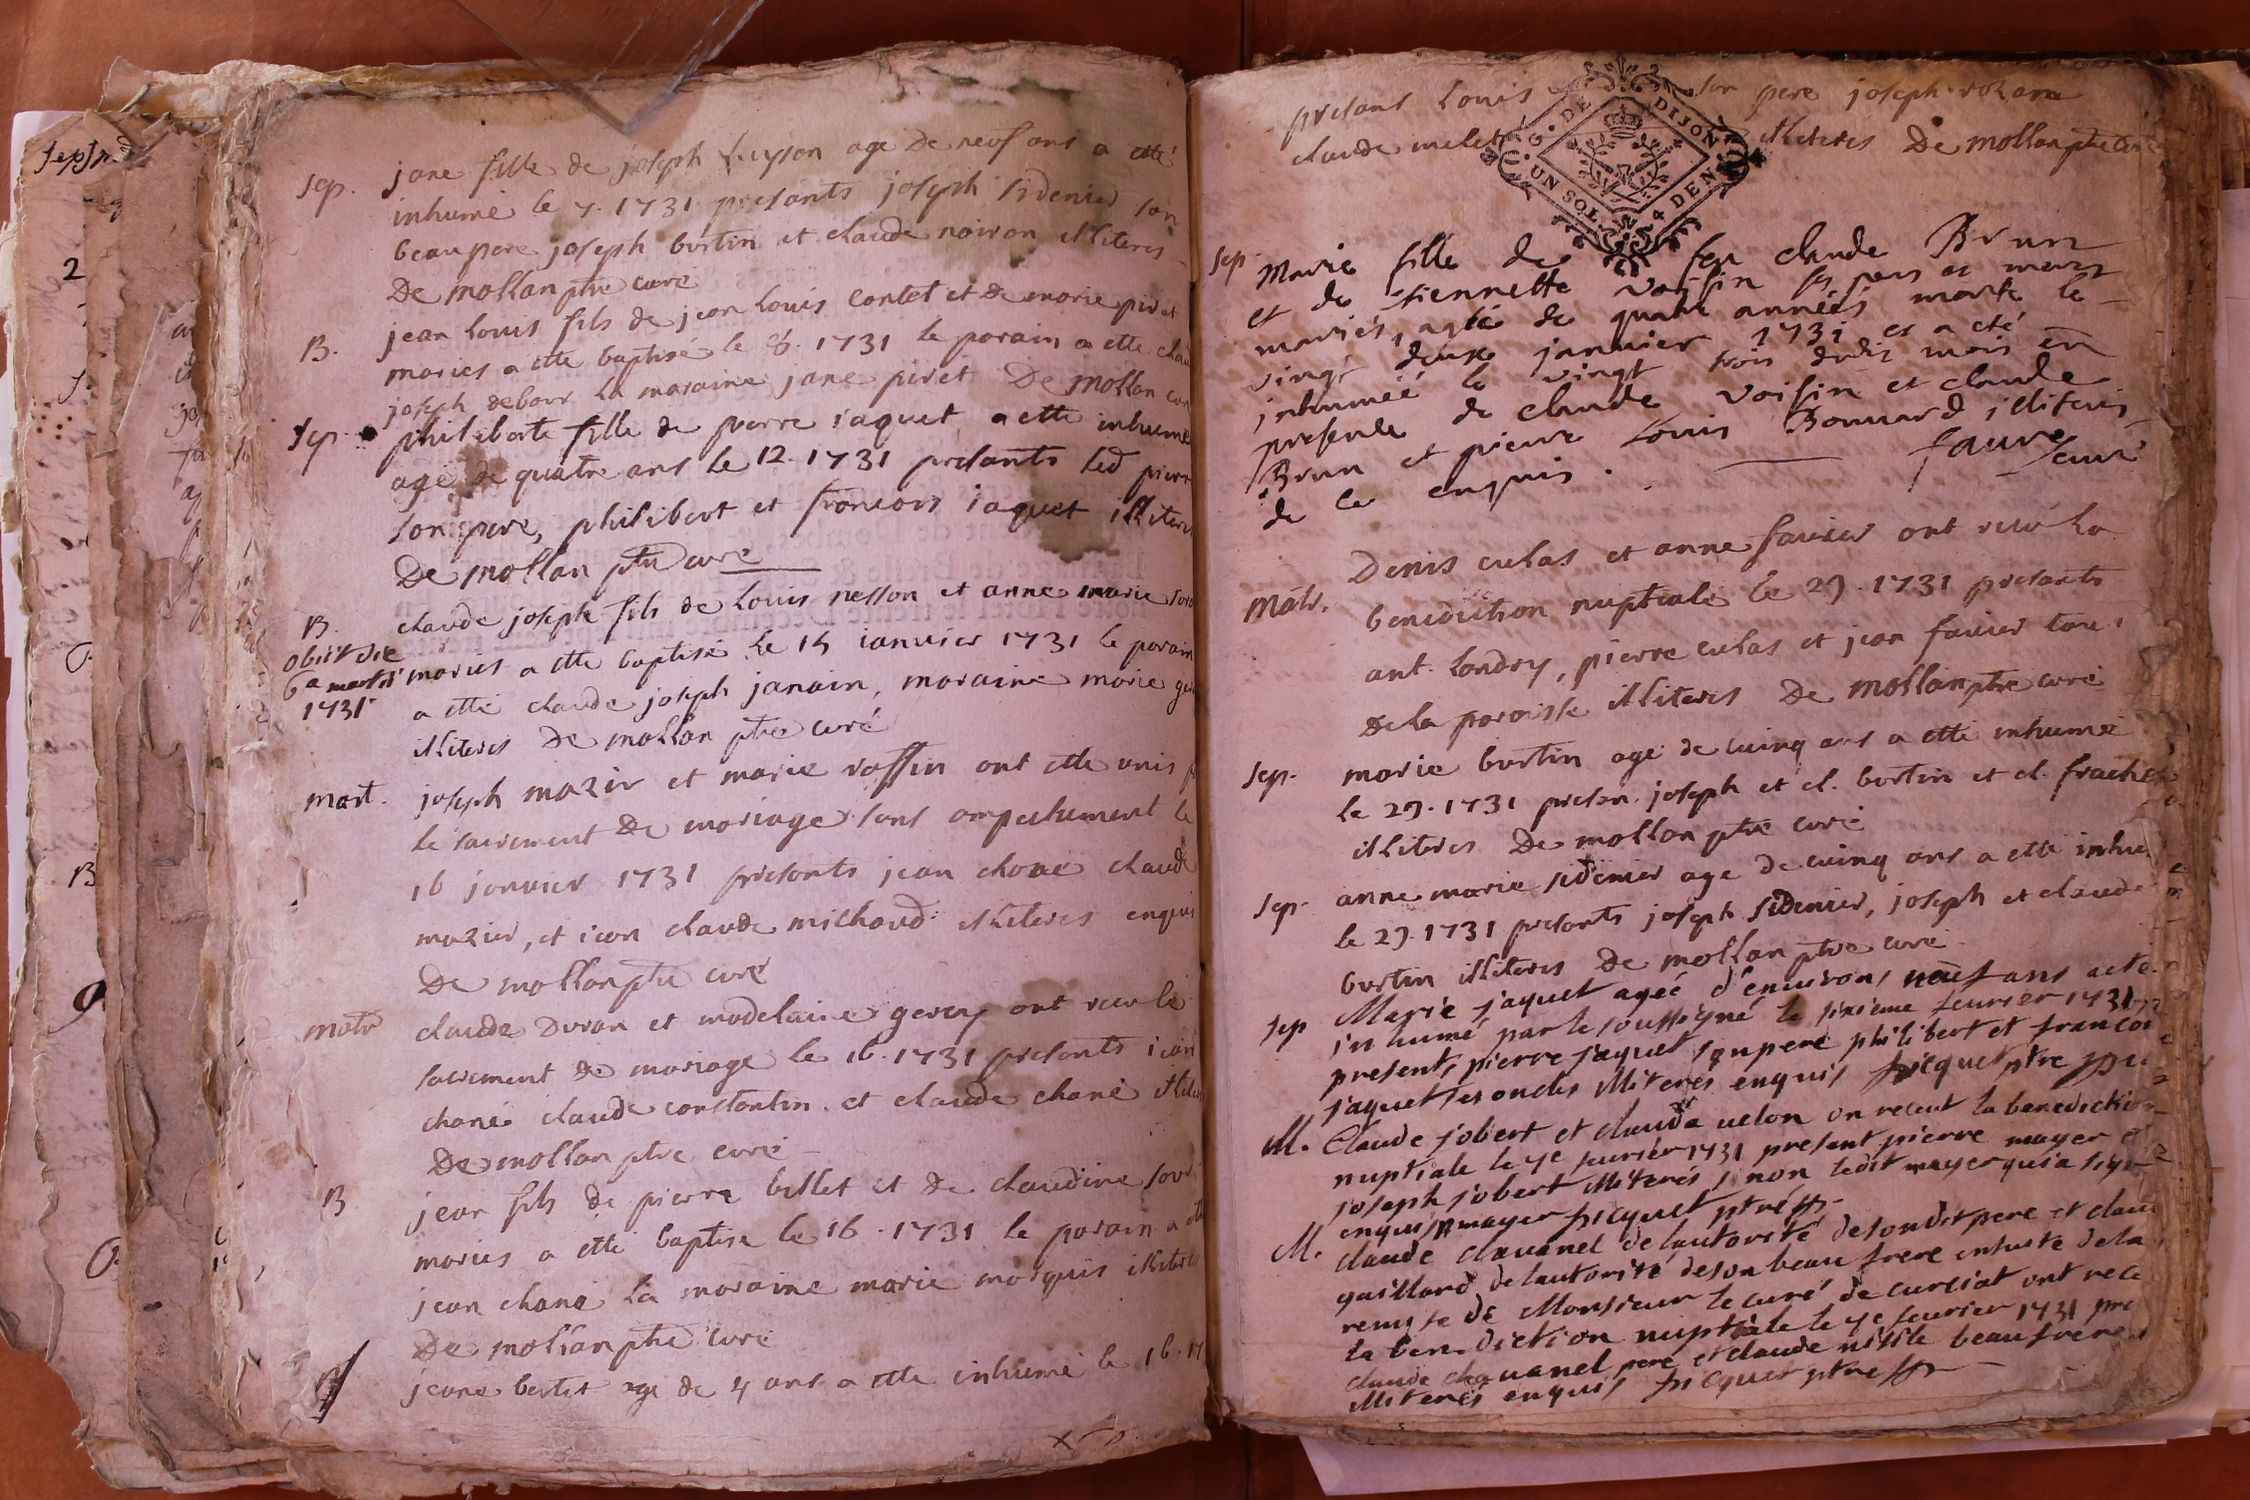 Sep. jane fille de joseph age de neuf ans a etté
inhumé le 7. 1731 presants joseph sidenier son
beaupere joseph burtin et claude noiron illiteres
De mollan ptre curé
B. jean louis fils de jean louis contet et de marie piret
maries a ette baptisé le 8. 1731 le parain a ette
joseph debour la maraine jane piret De mollan
Sep. philiberte fille de pierre iaquet a ette inhume
age de quatre ans le 12. 1731 presants led pierre
son pere, philibert et francois iaquet illiteres
De mollan ptre curé
B. claude joseph fils de louis nesson et anne marie
obiit die
6a martii maries a ette baptisé le 15 ianvier 1731 le parain
1731 a etté claude joseph janain, maraine marie
illiteres De mollan ptre curé
mart. joseph mazir et marie roffin ont ette unis
le sacrement de mariage sans ampechement le
16 janvier 1731 presants jean chane claude
mazier, et iean claude michaud illiteres enquis
De mollan ptre curé
matr claude Duran et madelaine ont receu le
sacrement de mariage le 16. 1731 presants iean
chané claude constantin et claude chané
De mollan ptre curé
B jean fils de pierre billet et de claudine
maries a etté baptisé le 16. 1731 le parain a
jean chané la maraine marie marquis illiteres
De mollan ptre curé
jeane age de 4 ans a ette inhumé le 16. 17
presant louis son pere joseph
G. DE DIJON
claude illiteres De mollan ptre curé
UN SOL 4 DEN.
Sep. Marie fille de feu claude Brun
et de etiennette voisin ses pere et mere
mariés, agée de quatre années morte le
vingt deux janvier 1731 et a eté
inhumeé le vingt trois dudit mois en
presence de claude voisin et claude
Brun et pierre Louis Bonnard illiteres
de ce enquis. faure curé
Matr. Denis culas et anne favier ont receu la
benediction nuptiale le 29. 1731 presants
ant. landry, pierre culas et jean favier tous
de la paroisse illiteres De mollan ptre curé
Sep. marie burtin age de cuinq ans a etté inhumeé
le 29. 1731 presan. joseph et cl. burtin et cl.
illiteres De mollan ptre curé
Sep. anne marie sidenier age de cuinq ans a etté
le 29. 1731 presants joseph sidenier, joseph et claude
burtin illiteres De mollan ptre curé
Sep Marie jaquet ageé d'environs neuf ans a
inhumé par le soussigné le sixieme feurier 1731
present, pierre jaquet son pere philibert et francois
jaquet ses oncles illiterés enquis picquet ptre
M. Claude jobert et claude uelon on receut la benediction
nuptiale le 7e feurier 1731 present pierre mayer et
joseph jobert illiterés sinon ledit mayer qui a
enquis mayer picquet ptre
M. claude chauanel de lautorité de son dit pere et
gaillard de lautorité de son beau frere ensuite de la
remise de Monsieur le curé de curciat ont
la benediction nuptiale le 7e feurier 1731
claude chauanel pere et claude beau frere
illiterés enquis picquet ptre